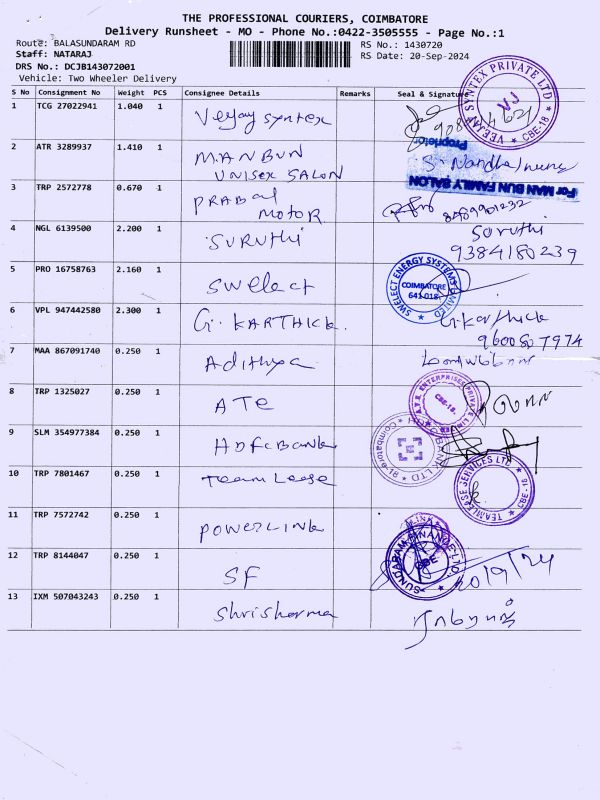 THE PROFESSIONAL COURIERS, COIMBATORE
Delivery Runsheet - MO - Phone No.:0422-3505555 - Page No.:1
Route: BALASUNDARAM RD
RS No.: 1430720
Staff: NATARAJ
RS Date: 20-Sep-2024
DRS No.: DCJB143072001
Vehicle: Two Wheeler Delivery
S No Consignment No Weight PCS Consignee Details Remarks Seal & Signature
1 TCG 27022941 1.040 1 Veejay syntex
VEEJAY SYNTEX PRIVATE LTD
VJ
CBE-18
2 ATR 3289937 1.410 1 MANBUN
UNISEX SALON
Proprietor
For MAN BUN FAMILY SALON
3 TRP 2572778 0.670 1 PRABAL
MOTOR
8489901232
4 NGL 6139500 2.200 1 SURUTHI Suruthi
9384180239
5 PRO 16758763 2.160 1 Swelect
SWELECT ENERGY SYSTEMS LIMITED
COIMBATORE
641 018
6 VPL 947442580 2.300 1 G. KARTHICK. G.Karthick
9600507974
7 MAA 867091740 0.250 1 Adithya
8 TRP 1325027 0.250 1 ATE
ENTERPRISES PRIVATE LIMITED
CBE-18.
9 SLM 354977384 0.250 1 HDFC BANK
BANK LTD
Coimbatore-18
10 TRP 7801467 0.250 1 Team Lease
TEAMLEASE SERVICES LTD
CBE - 18
11 TRP 7572742 0.250 1 POWERLINK
12 TRP 8144047 0.250 1 SF
SUNDARAM FINANCE LTD
CBE
20/9/24
13 IXM 507043243 0.250 1 Shrisharma